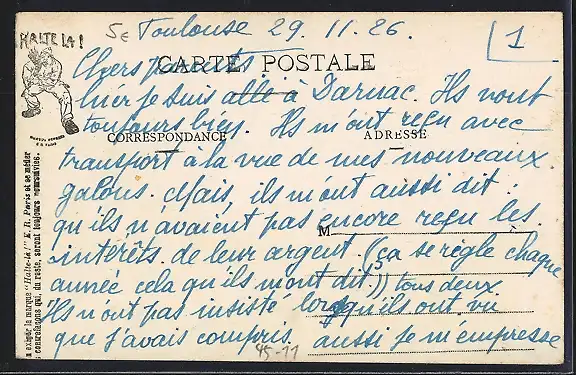 HALTE LA!
5E Toulouse 29. 11. 26.
1
CARTE POSTALE
Chers parents
hier je suis allé à Darnac. Ils vont
toujours bien. Ils m'ont reçu avec
CORRESPONDANCE
ADRESSE
transport à la vue de mes nouveaux
galons. Mais, ils m'ont aussi dit :
qu'ils n'avaient pas encore reçu les
M
intérêts de leur argent. (ça se règle chaque
année cela qu'ils m'ont dit.)) tous deux
Ils n'ont pas insisté lorsqu'ils ont vu
que j'avais compris. aussi je m'empresse
45-11
exiger la marque "Halte-là!" E. R. Paris et se méfier
contrefaçons qui, du reste, seront toujours poursuivies.